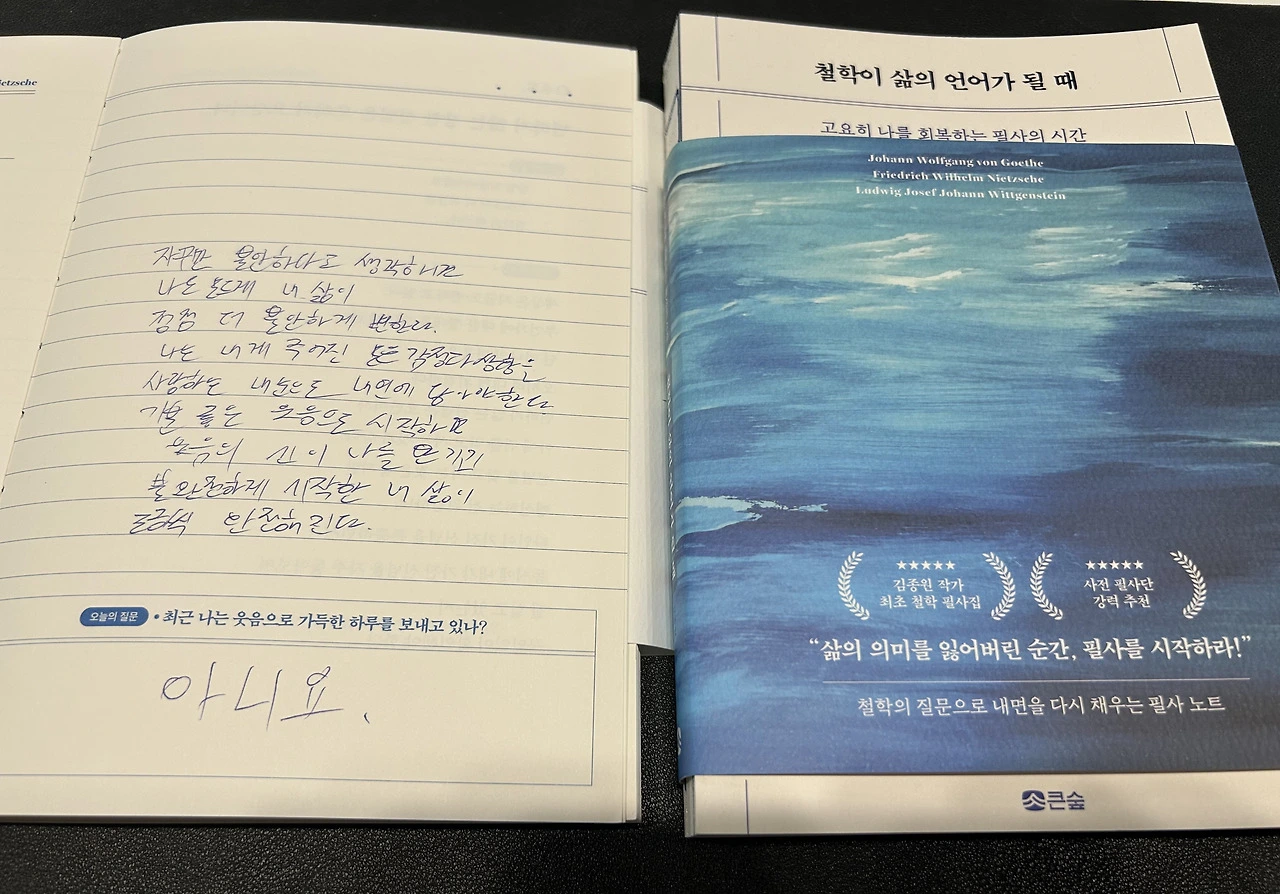 ietzsche
자꾸만 불안하다고 생각하면
나도 모르게 내 삶이
점점 더 불안하게 변한다.
나는 내게 주어진 모든 감정과 상황을
사랑하는 내 눈으로 내면에 담아야 한다
기분 좋은 웃음으로 시작하면
웃음의 신이 나를 반기고
불완전하게 시작한 내 삶이
조금씩 완전해진다.
오늘의 질문 • 최근 나는 웃음으로 가득한 하루를 보내고 있나?
아니요.
철학이 삶의 언어가 될 때
고요히 나를 회복하는 필사의 시간
Johann Wolfgang von Goethe
Friedrich Wilhelm Nietzsche
Ludwig Josef Johann Wittgenstein
★★★★★
김종원 작가
최초 철학 필사집
★★★★★
사전 필사단
강력 추천
“삶의 의미를 잃어버린 순간, 필사를 시작하라!”
철학의 질문으로 내면을 다시 채우는 필사 노트
큰숲